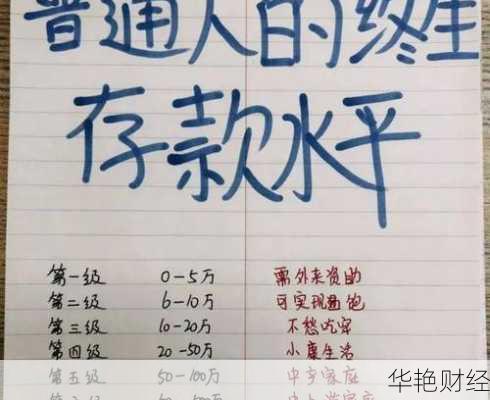 普通人的终生
存款水平
第一级 0-5万 需外来资助
第二级 6-10万 可实现温饱
第三级 10-20万 不愁吃穿
第四级 20-50万 小康生活
第五级 50-100万 中产家庭
华艳财经